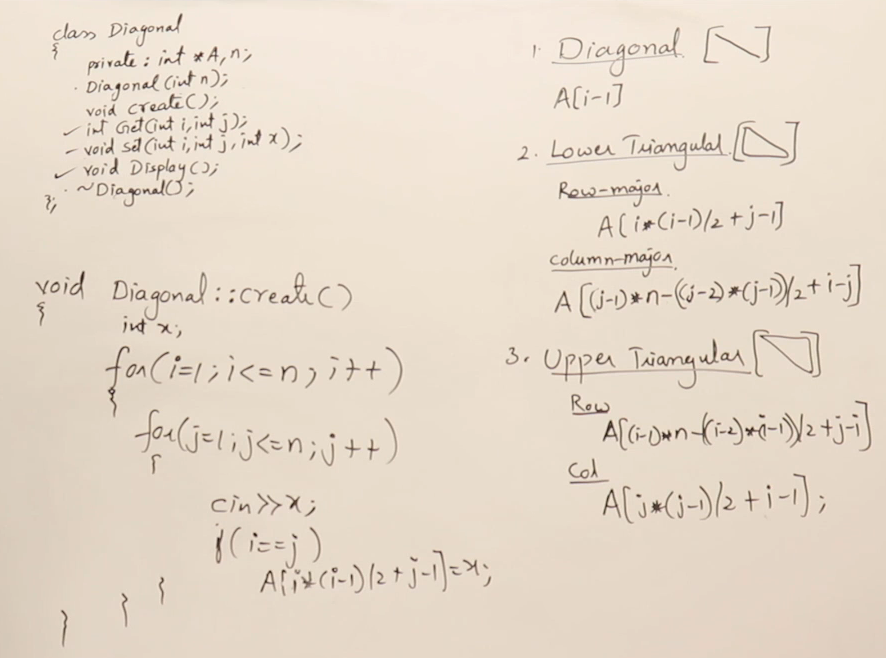 class Diagonal
{
private: int *A, n;
Diagonal(int n);
void create();
✓ int Get(int i, int j);
- void set(int i, int j, int x);
✓ void Display();
~Diagonal();
};
void Diagonal::create()
{
int x;
for(i=1; i<=n; i++)
{
for(j=1; j<=n; j++)
{
cin>>x;
if(i==j)
A[i*(i-1)/2+j-1]=x;
}
}
}
1. Diagonal
A[i-1]
2. Lower Triangular
Row-major
A[i*(i-1)/2+j-1]
column-major
A[(j-1)*n-((j-2)*(j-1))/2+i-j]
3. Upper Triangular
Row
A[(i-1)*n-(i-2)*(i-1))/2+j-i]
Col
A[j*(j-1)/2+i-1];